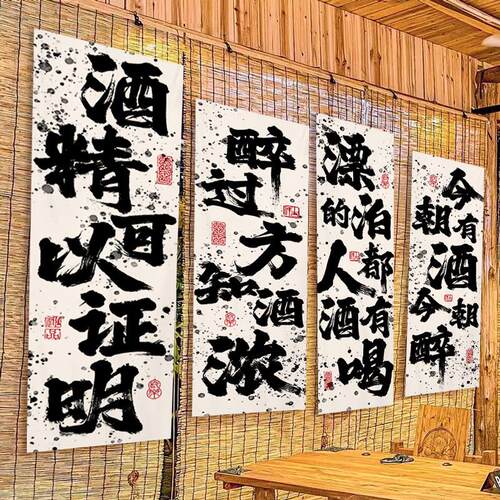 酒精可以证明
醉过方知酒浓
漂泊的人都有酒喝
今朝有酒今朝醉